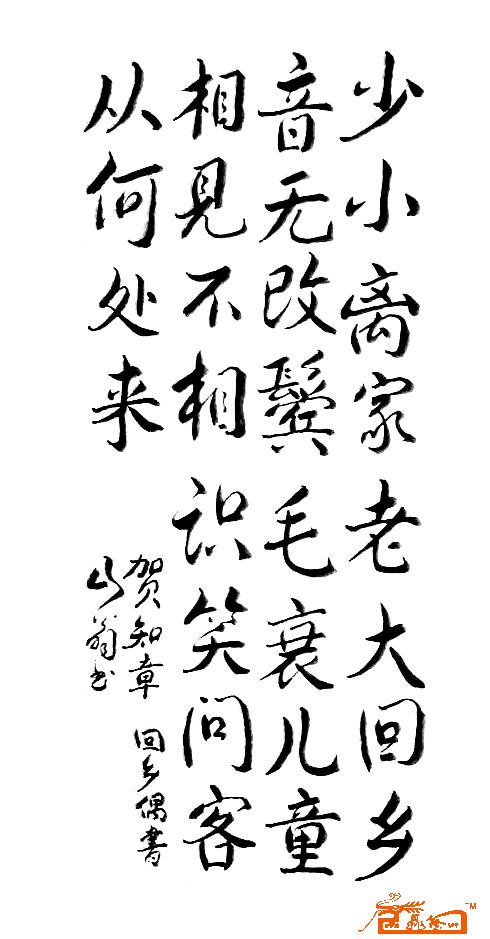 少小离家老大回乡
音无改鬓毛衰儿童
相见不相识笑问客
从何处来
贺知章 回乡偶書
山翁书
TM